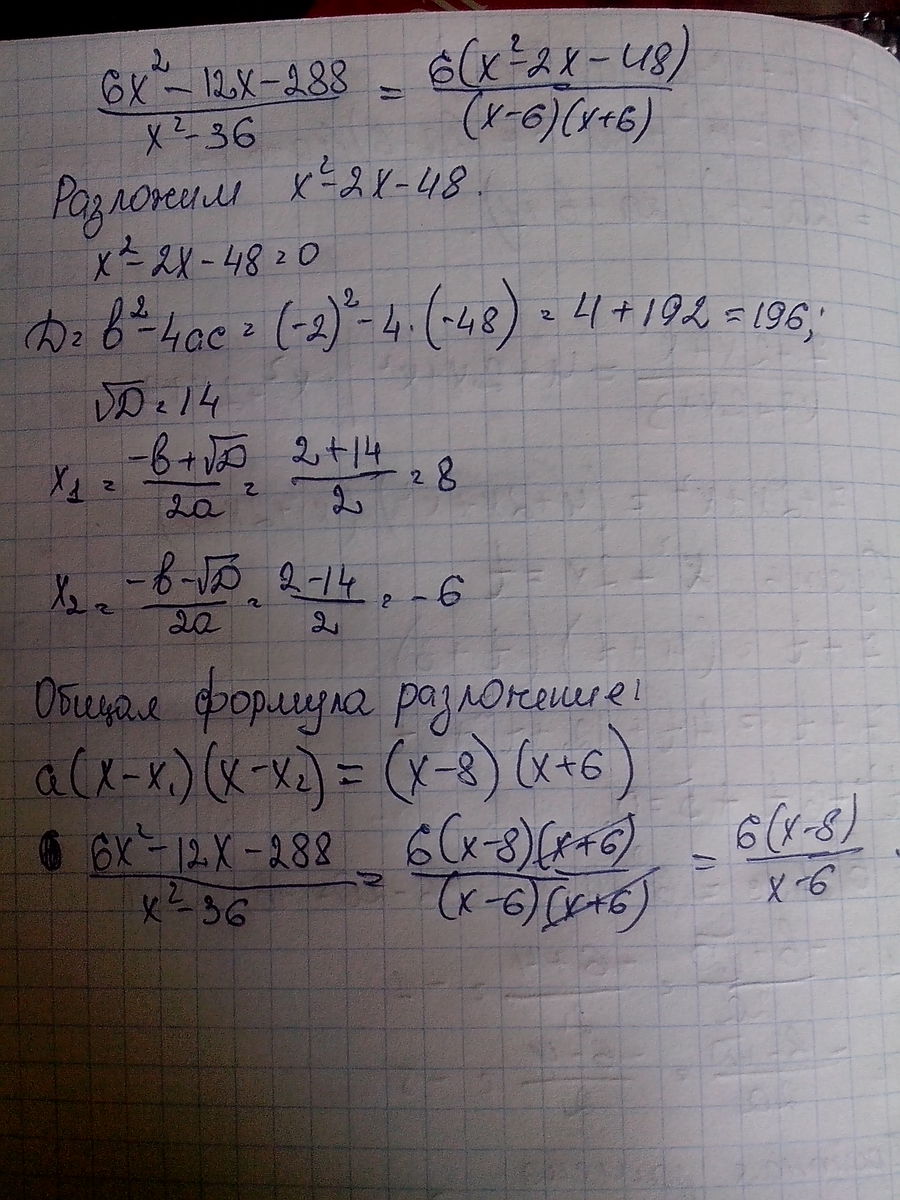 (6x² - 12x - 288)/(x² - 36) = 6(x² - 2x - 48)/((x-6)(x+6))
Разложим x² - 2x - 48.
x² - 2x - 48 = 0
D = b² - 4ac = (-2)² - 4·(-48) = 4 + 192 = 196;
√D = 14
x₁ = (-b + √D)/2a = (2 + 14)/2 = 8
x₂ = (-b - √D)/2a = (2 - 14)/2 = -6
Общая формула разложение:
a(x - x₁)(x - x₂) = (x - 8)(x + 6)
(6x² - 12x - 288)/(x² - 36) = 6(x-8)(x+6)/((x-6)(x+6)) = 6(x-8)/(x-6).